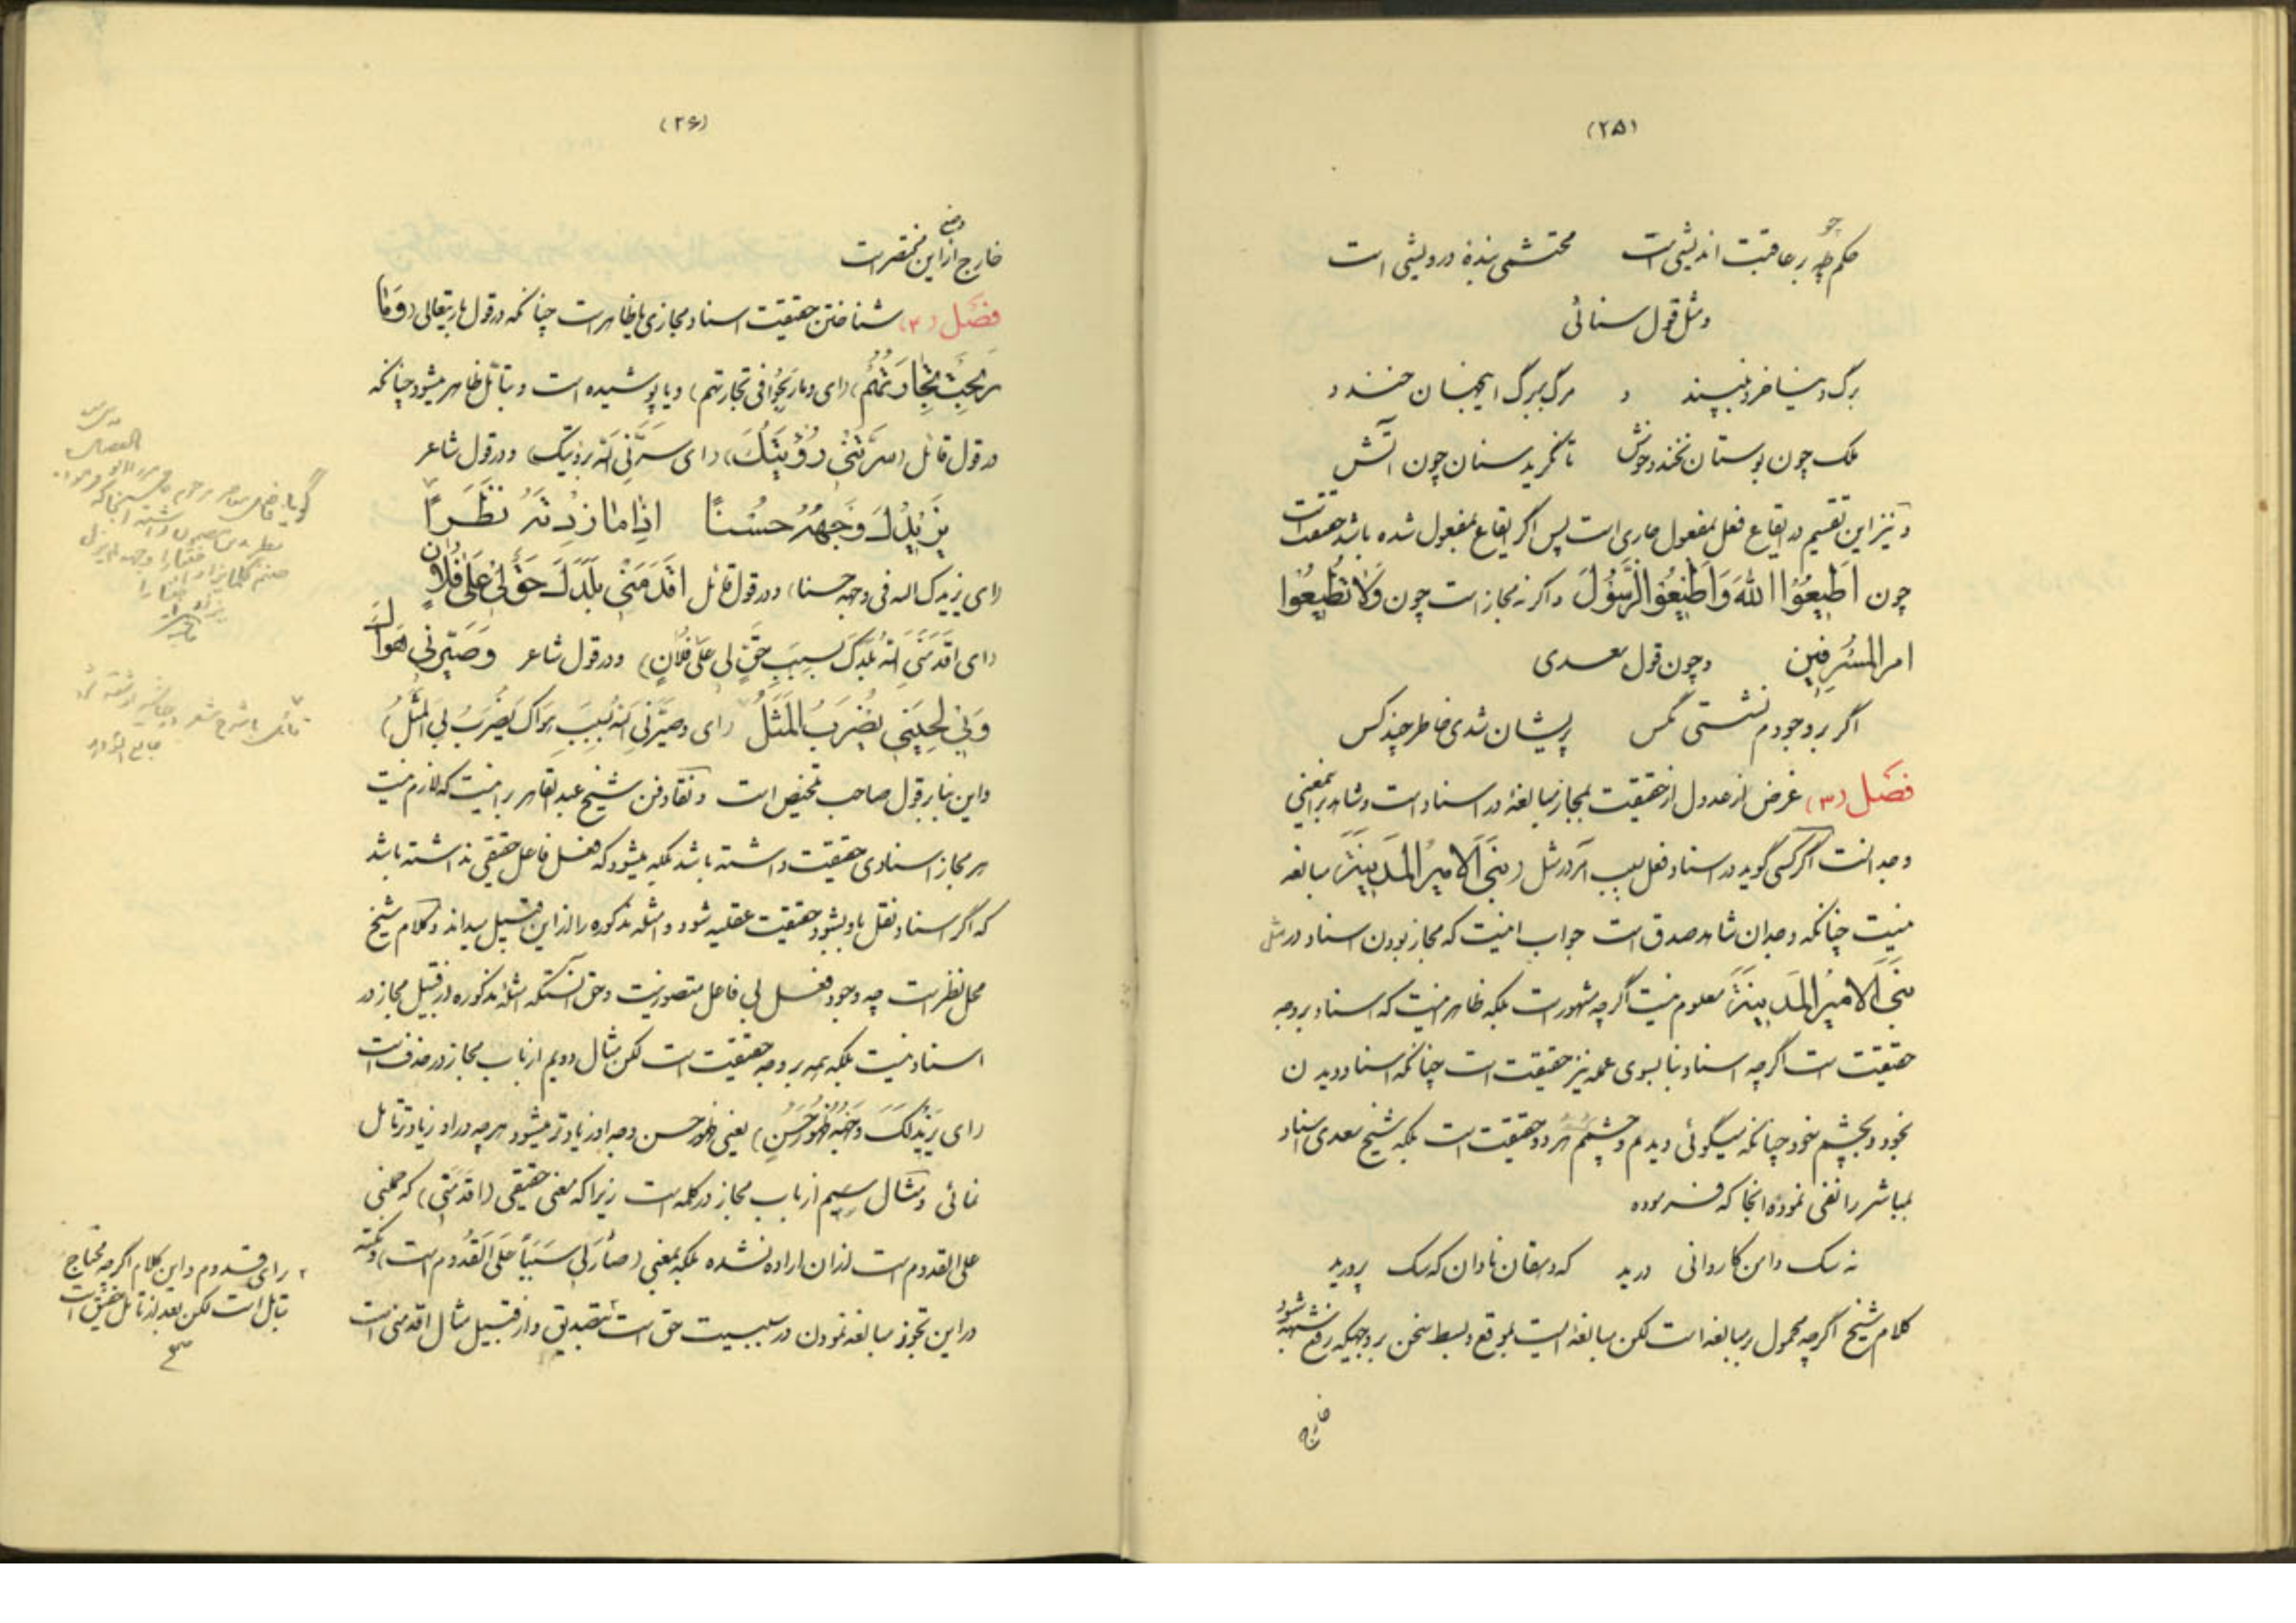 (۲۵)
حکم چو بر عاقبت اندیشی است محتشمی بندهٔ درویشی است
و مثل قول سنائی
برگ دنیا خرد نپسندد مرگ بر برگ اینجهان خندد
ملک چون بوستان نخندد خوش تا نگرید سنان چون آتش
و نیز این تقسیم در ایقاع فعل بمفعول جاری است پس اگر ایقاع بمفعول شده باشد حقیقت است
چون اَطیعُوا اللهَ وَاَطیعُوا الرَّسُولَ و اگر نه مجاز است چون وَلا تُطیعُوا
امر المُسْرِفین و چون قول سعدی
اگر بر وجودم نشستی مگس پریشان شدی خاطر چند کس
فصل (۳) غرض از عدول از حقیقت بمجاز مبالغهٔ در اسناد است و شاهد بر اینمعنی
وجد انست اگر کسی گوید در اسناد فعل بسبب آمر در مثل (بَنَی الاَمیرُ المَدینَةَ) مبالغه
نیست چنانکه وجدان شاهد صدق است جواب اینست که مجاز بودن اسناد در مثل
بَنَی الاَمیرُ المَدینَةَ معلوم نیست اگرچه مشهور است بلکه ظاهر اینست که اسناد بر وجه
حقیقت است اگرچه اسناد بنا بسوی عمله نیز حقیقت است چنانکه اسناد دیدن
بخود و بچشم خود چنانکه میگوئی دیدم و چشمم هر دو حقیقت است بلکه شیخ سعدی اسناد
بمباشر را نفی نموده انجا که فرموده
نه سگ دامن کاروانی درید که دهقان نادان که سگ پرورید
کلام شیخ اگرچه محمول بر مبالغه است لکن مبالغهٔ است بموقع و بسط سخن بر وجهیکه رفع شبهه شود
خارج
(۲۶)
خارج از وضع این مختصر است
فصل (۴) شناختن حقیقت اسناد مجازی یا ظاهر است چنانکه در قول باریتعالی (وَمٰا
رَبِحَتْ تِجٰارَتُهُم) (ای و ما رَبِحُوا فی تجارتهم) و یا پوشیده است و بتأمّل ظاهر میشود چنانکه
در قول قائل (سَرَّتْنی رُؤْیَتُکَ) (ای سَرَّنِی اللهُ برؤیتک) و در قول شاعر
یَزیدُكَ وَجْهُهُ حُسْنًا اِذٰا مٰا زِدْتَهُ نَظَرًا
(ای یزیدک الله فی وجهه حسنا) و در قول قائل اَقْدَمَنی بَلَدَكَ حَقٌّ لی عَلیٰ فُلانٍ
(ای اَقْدَمَنِی اللهُ بلدَکَ بسبَبِ حَقٍّ لی علی فلانٍ) و در قول شاعر وَصَیَّرَنی هَوٰاكَ
وَبی لِحَیْنی یُضْرَبُ المَثَلُ (ای و صَیَّرَنِی اللهُ بسببِ هواک یُضرَبُ بی المَثَلُ)
و این بنابر قول صاحب تلخیص است و نقّاد فن شیخ عبد القاهر بر اینست که لازم نیست
هر مجاز اسنادی حقیقت داشته باشد بلکه میشود که فعل فاعل حقیقی نداشته باشد
که اگر اسناد فعل باو بشود حقیقت عقلیه شود و امثله مذکوره را از این قبیل میداند و کلام شیخ
محل نظر است چه وجود فعل بی فاعل متصور نیست و حق آنستکه امثله مذکوره از قبیل مجاز در
اسناد نیست بلکه همه بر وجه حقیقت است لکن مثال دویم از باب مجاز در حذف است
(ای یَزیدُکَ وَجْهُهُ ظُهُورَ حُسْنٍ) یعنی ظهور حسن وجه او زیادتر میشود هر چه در او زیادتر تامّل
نمائی و مثال سیم از باب مجاز در کلمه است زیرا که معنی حقیقی (اقدمنی) که حملنی
علی القدوم است از ان اراده نشده بلکه بمعنی (صٰارَ لی سَبَباً عَلَی القُدُوم است) و نکته
در این تجوز مبالغه نمودن در سببیت حق است بتصدیق و از قبیل مثال اقدمنی است
۲ رای قدوم و این کلام اگرچه محتاج
بتامّل است لکن بعد از تامّل حقیقی است